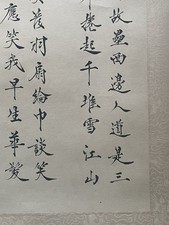 故壘西邊人道是三
捲起千堆雪江山
發羽扇綸巾談笑
應笑我早生華髮